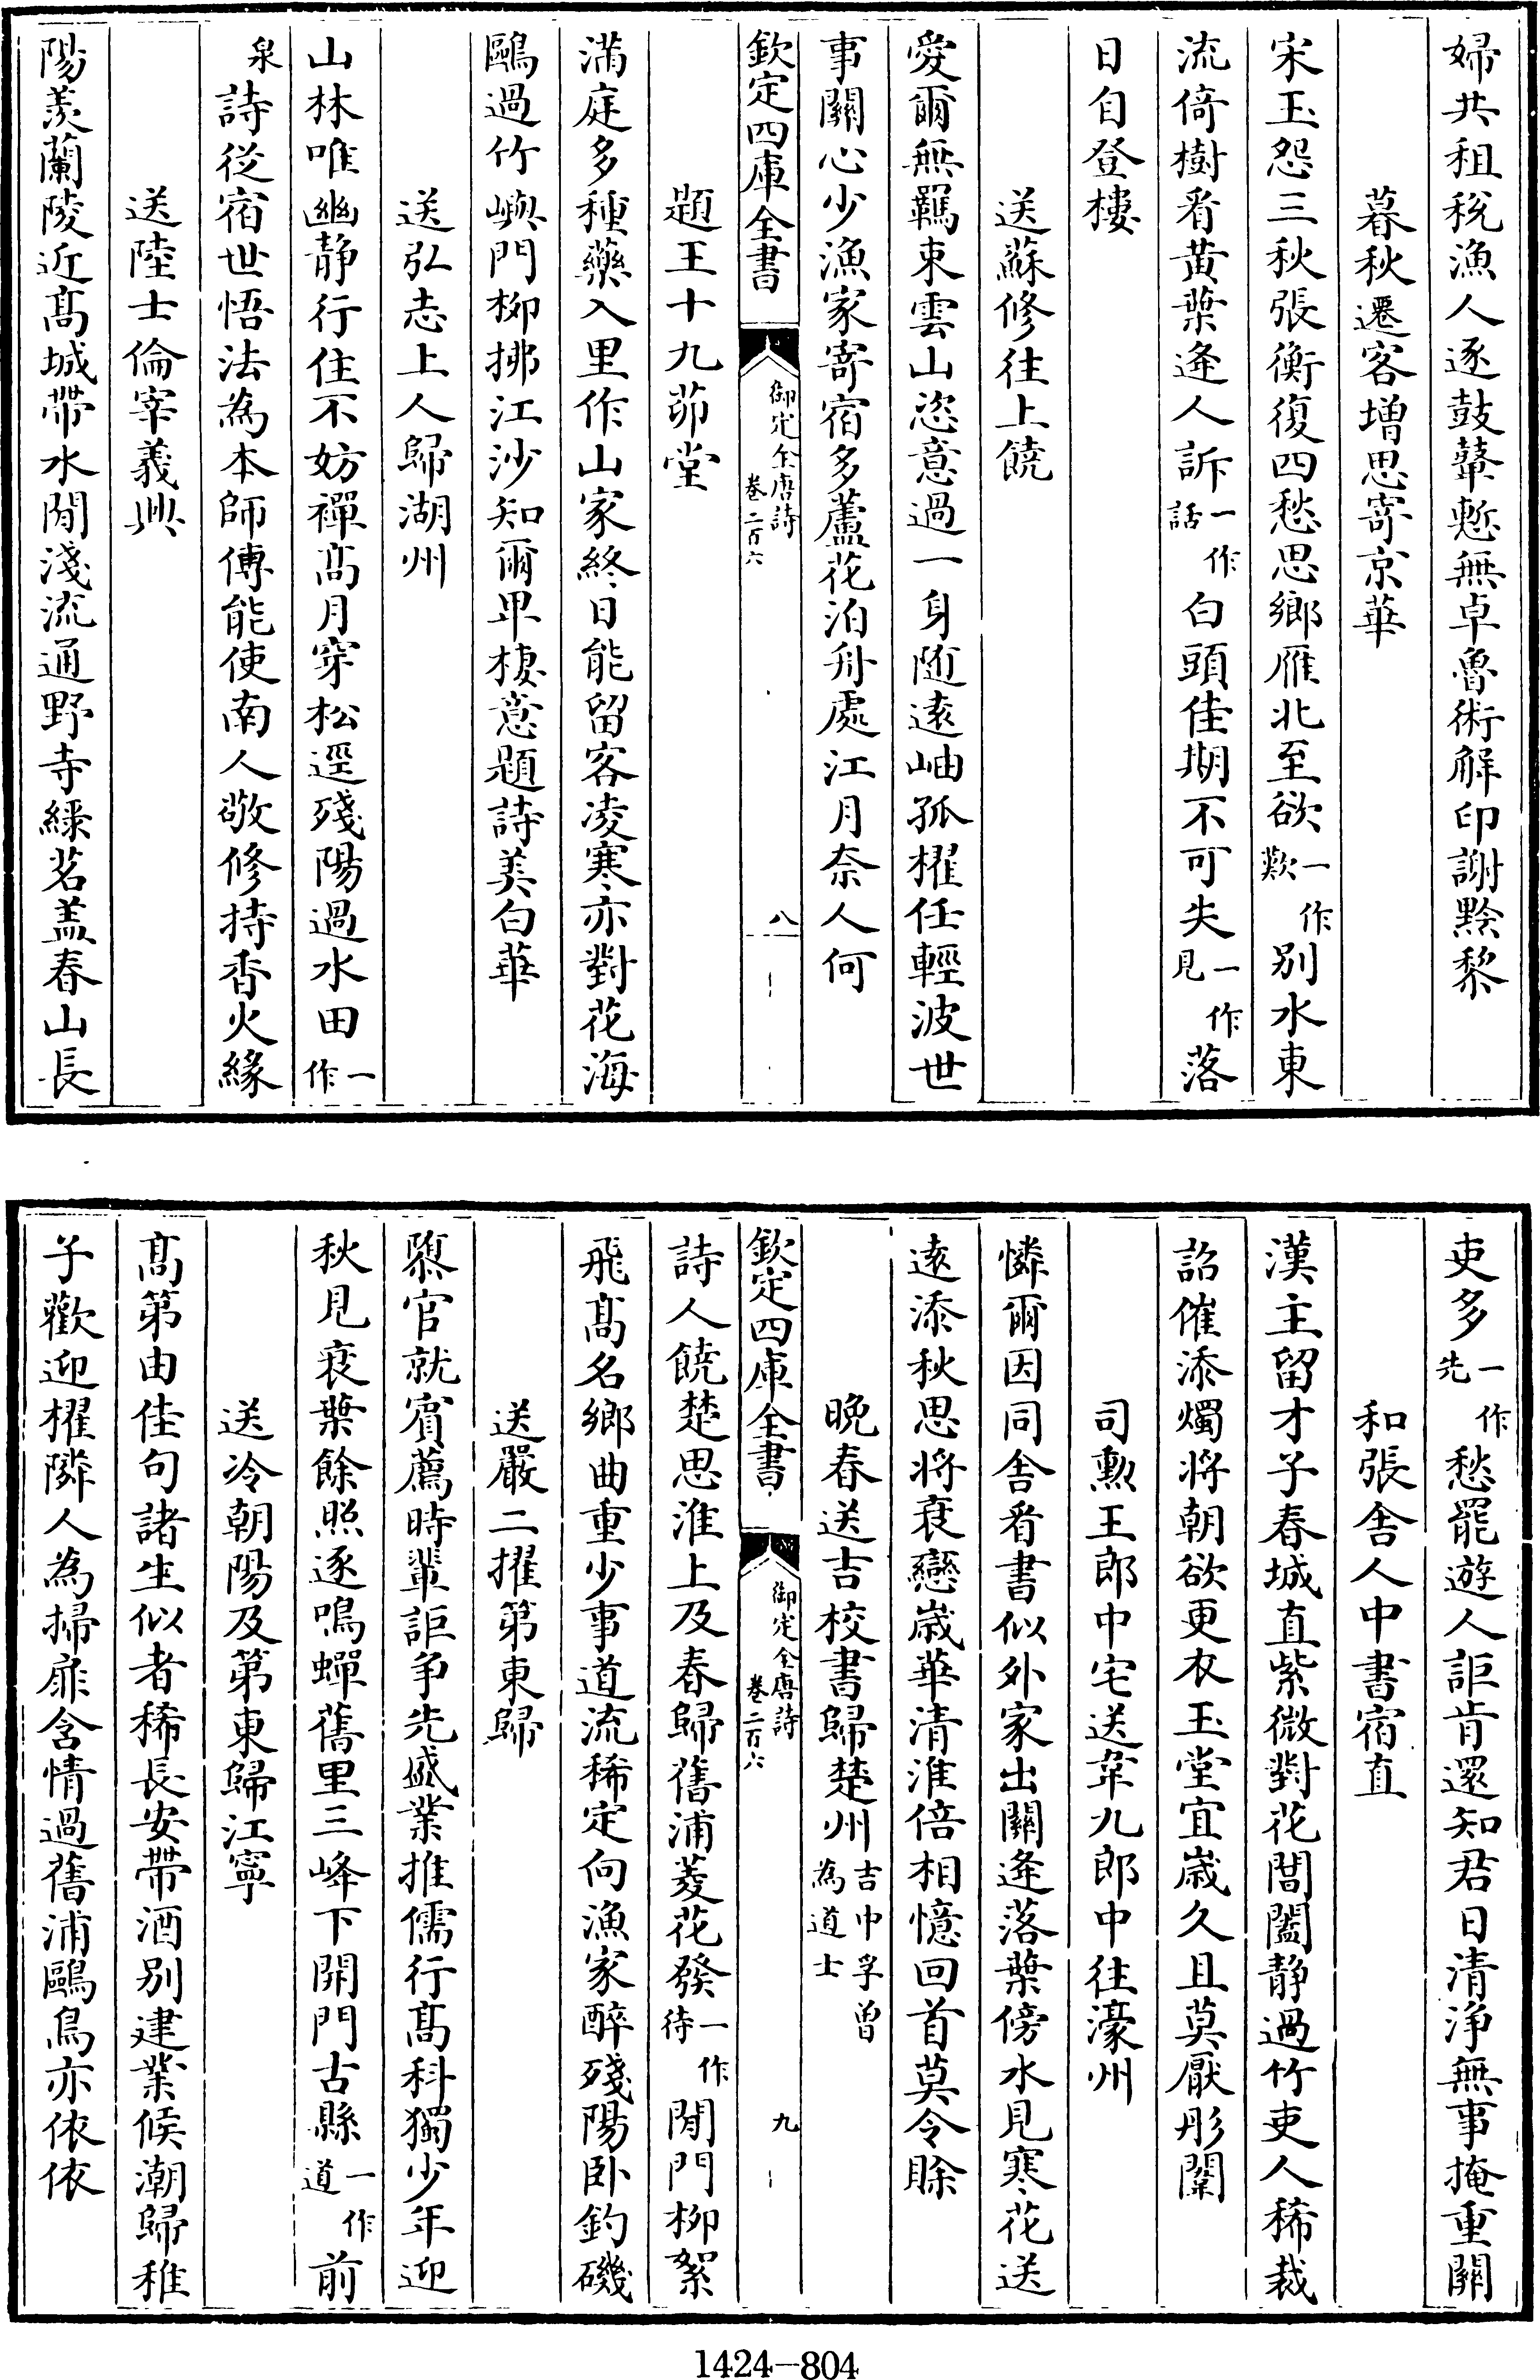 婦共租稅漁人逐鼓鼙慙無卓魯術解印謝黔黎
暮秋遷客增思寄京華
宋玉怨三秋張衡復四愁思鄉雁北至欲一作歎别水東
流倚樹看黃葉逢人訴一作話白頭佳期不可失一作見落
日自登樓
送蘇修往上饒
愛爾無羈束雲山恣意過一身随逺岫孤櫂任輕波世
事關心少漁家寄宿多蘆花泊舟處江月奈人何
欽定四庫全書
御定全唐詩
卷二百六
八
題王十九茆堂
滿庭多種藥入里作山家終日能留客凌寒亦對花海
鷗過竹嶼門栁拂江沙知爾卑棲意題詩美白華
送弘志上人歸湖州
山林唯幽静行住不妨禪髙月穿松逕殘陽過水田一作
泉詩從宿世悟法為本師傳能使南人敬修持香火緣
送陸士倫宰義興
陽羨蘭陵近髙城帶水閒淺流通野寺緑茗盖春山長
吏多一作先愁罷遊人詎肯還知君日清浄無事掩重關
和張舍人中書宿直
漢主留才子春城直紫微對花閶闔静過竹吏人稀裁
詔催添燭將朝欲更衣玉堂宜嵗久且莫厭彤闈
司勲王郎中宅送韋九郎中往濠州
憐爾因同舍看書似外家出關逢落葉傍水見寒花送
逺添秋思將衰戀嵗華清淮倍相憶回首莫令賒
晚春送吉校書歸楚州吉中孚曾為道士
欽定四庫全書
御定全唐詩
卷二百六
九
詩人饒楚思淮上及春歸舊浦菱花發一作待閒門栁絮
飛髙名鄉曲重少事道流稀定向漁家醉殘陽卧釣磯
送嚴二擢第東歸
隳官就賓薦時輩詎争先盛業推儒行髙科獨少年迎
秋見衰葉餘照逐鳴蟬舊里三峰下開門古縣一作道前
送冷朝陽及第東歸江寧
髙第由佳句諸生似者稀長安帶酒别建業候潮歸稚
子歡迎櫂隣人為掃扉含情過舊浦鷗鳥亦依依
1424-804